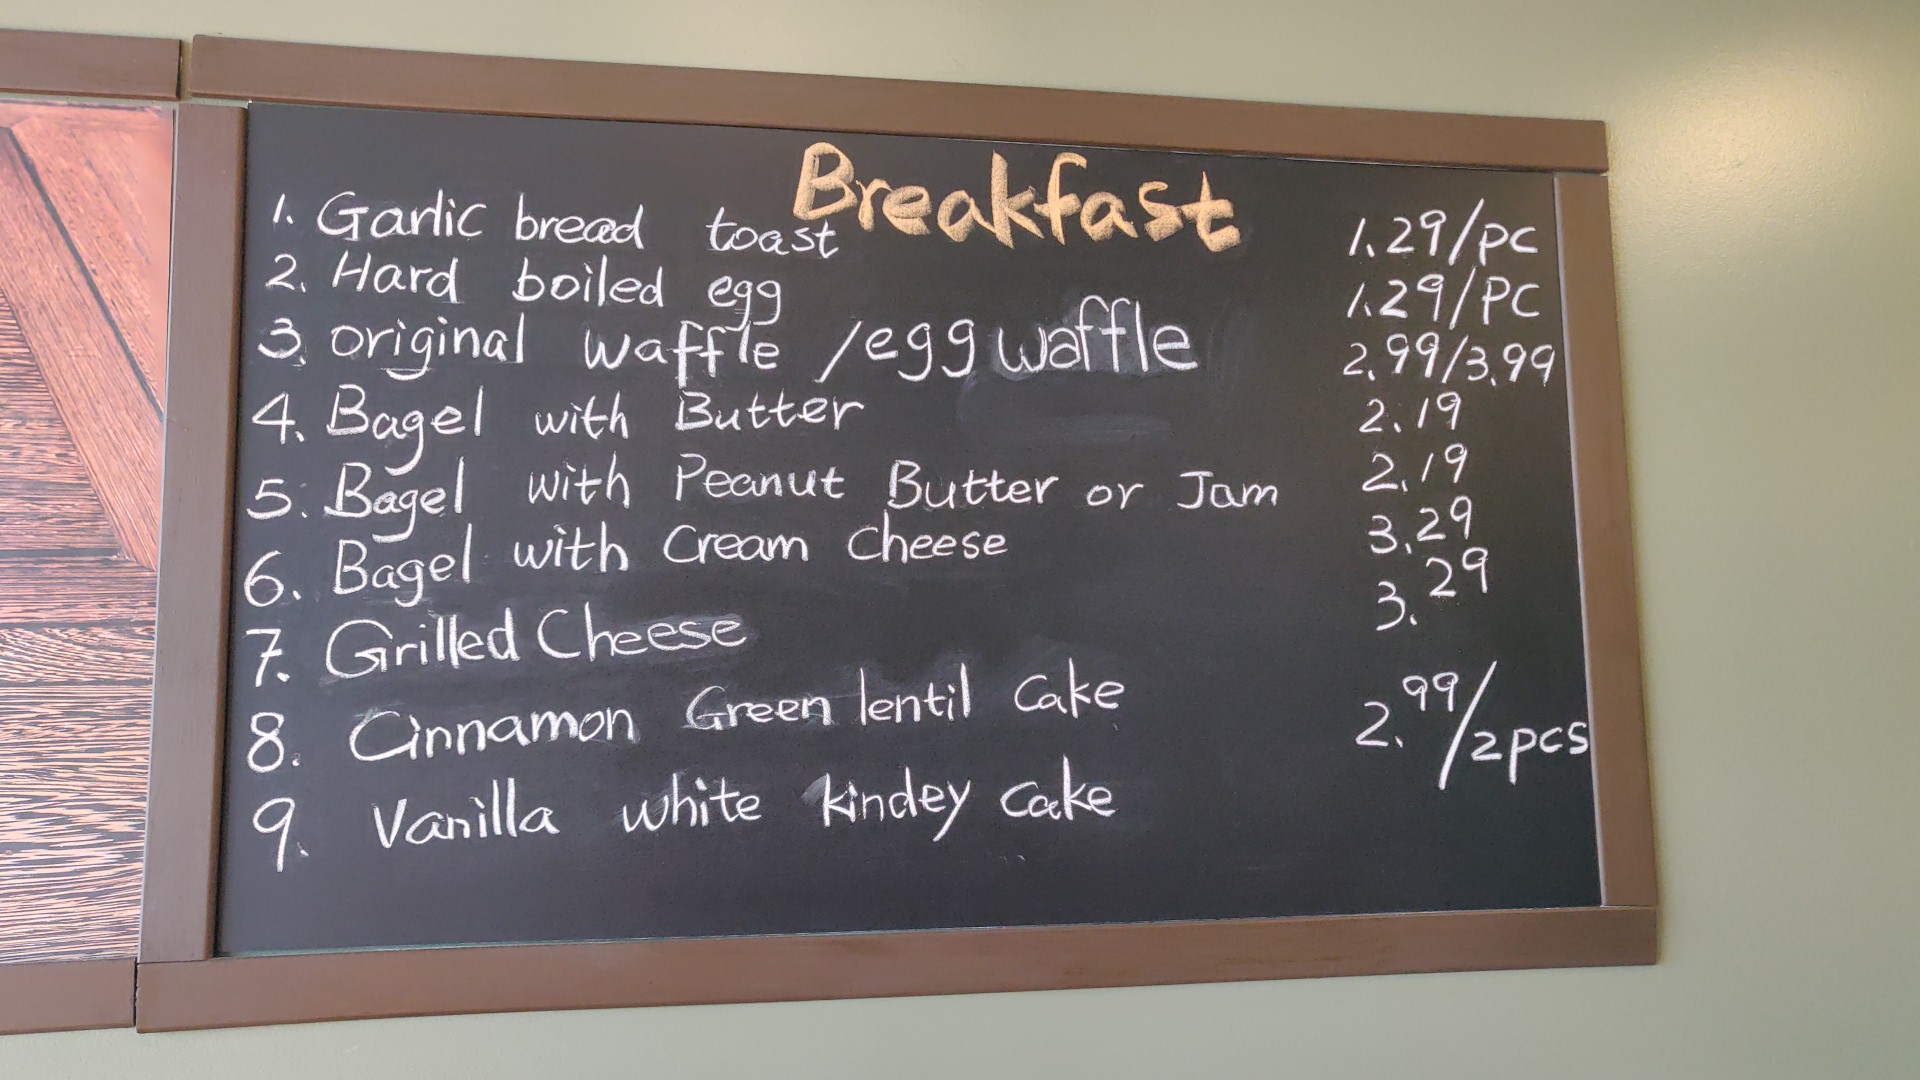 Breakfast
1. Garlic bread toast 1.29/pc
2. Hard boiled egg 1.29/PC
3. original waffle /egg waffle 2.99/3.99
4. Bagel with Butter 2.19
5. Bagel with Peanut Butter or Jam 2.19
6. Bagel with Cream Cheese 3.29
7. Grilled Cheese 3.29
8. Cinnamon Green lentil Cake 2.99/2pcs
9. Vanilla white kindey Cake